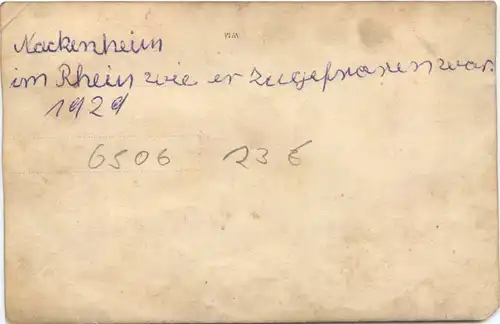 Nackenheim
im Rhein wie er zugefroren war.
1929
6506 23 €